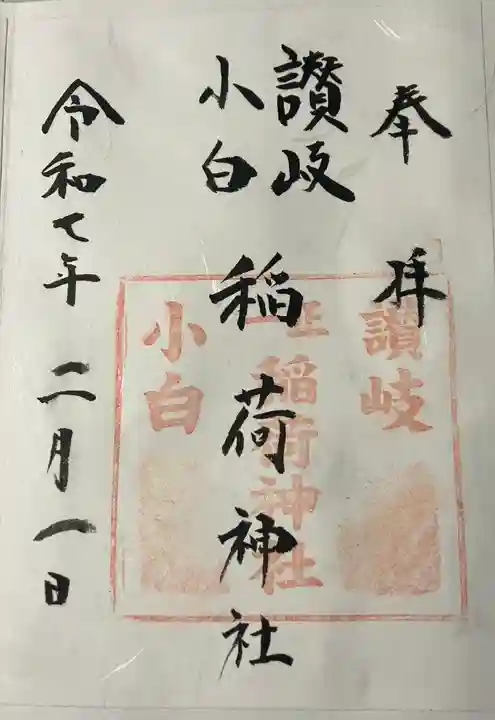 奉拝
讃岐
小白
稲荷神社
令和七年 二月一日
讃岐
正一
稲荷神社
小白